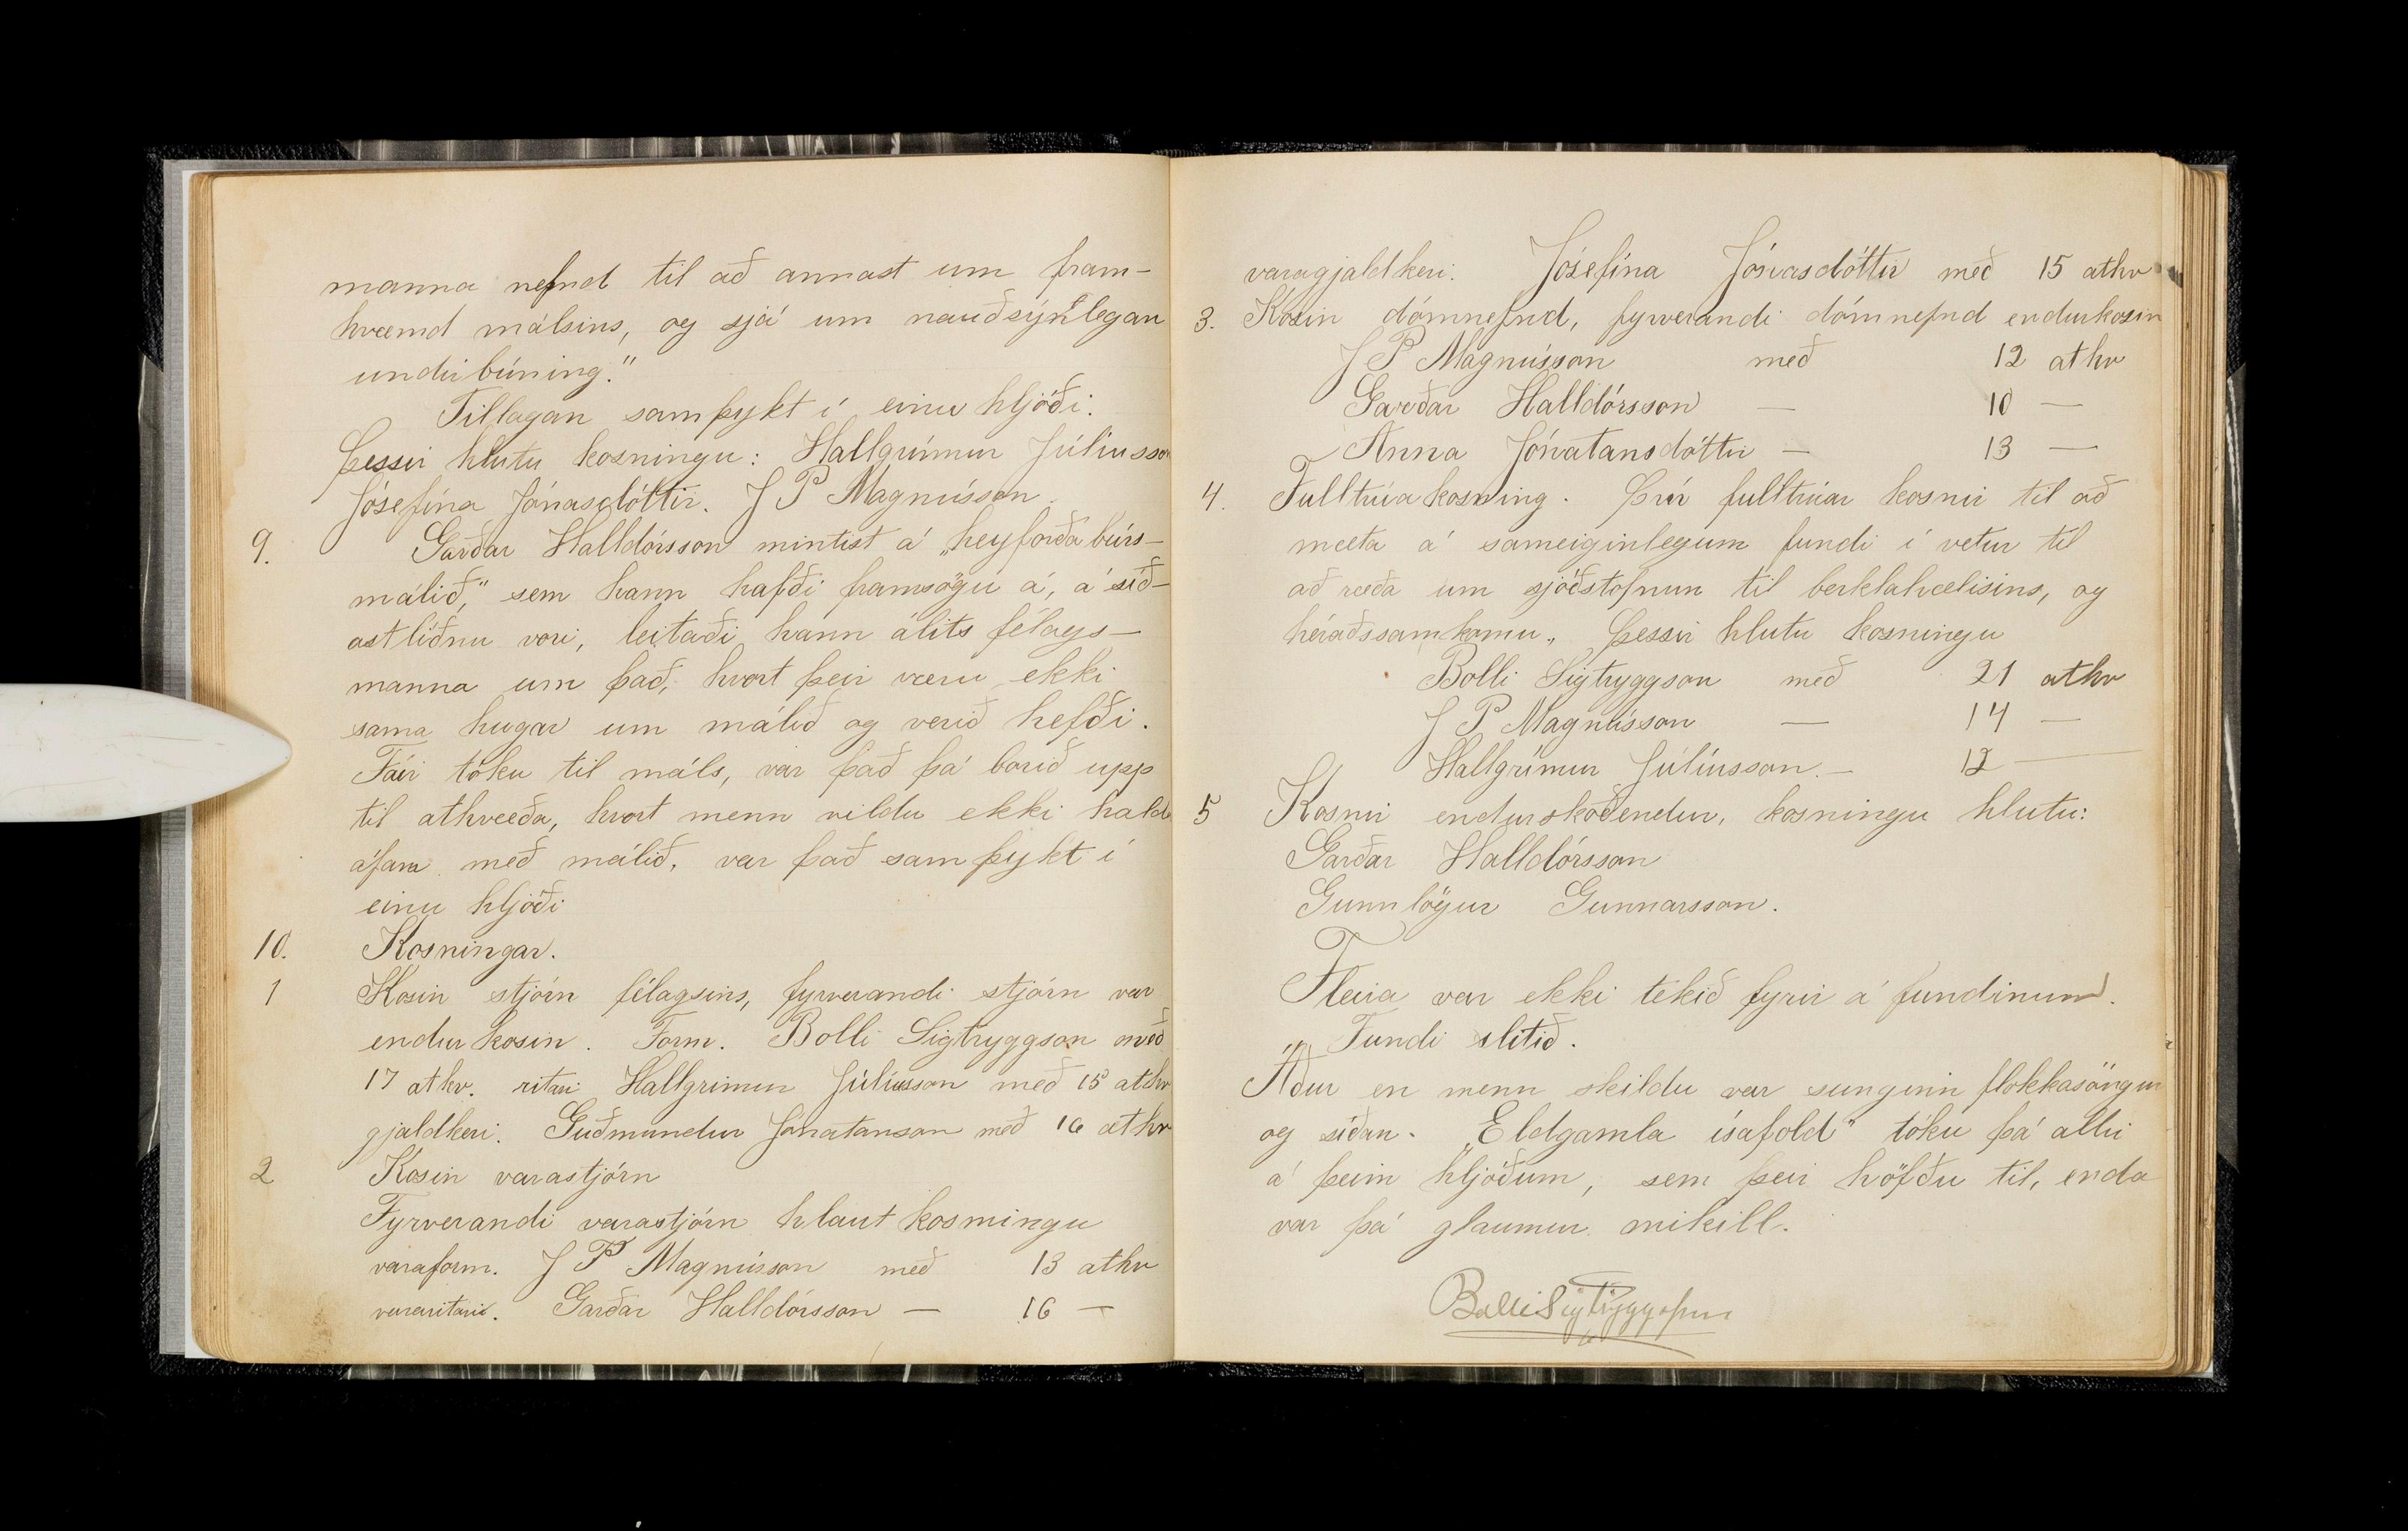 manna nefnd til að annast um fram-
kvæmd málsins, og sjá um nauðsýnlegan
undirbúning."
Tillagan samþykt í einu hljóði.
Þessir hlutu kosningu: Hallgrímur Júlíusson
Jósefína Jónasdóttir. J P Magnússon.
9. Garðar Halldórsson mintist á „heyforðabúrs-
málið," sem hann hafði framsögu á, á síð-
astliðnu vori, leitaði hann álits félags-
manna um það, hvort þeir væru ekki
sama hugar um málið og verið hefði.
Fáir tóku til máls, var það þá borið upp
til athvæða, hvort menn vildu ekki hald
áfam með málið, var það samþykt í
einu hljóði
10. Kosningar.
1 Kosin stjórn félagsins, fyrverandi stjórn var
endurkosin. Form. Bolli Sigtryggson með
17 athv. ritari Hallgrimur Júlíusson með 15 athv
gjaldkeri. Guðmundur Jónatanson með 16 athv
2 Kosin varastjórn
Fyrverandi varastjórn hlaut kosningu
varaform. J P Magnússon með 13 athv
vararitari. Garðar Halldórsson — 16 —
varagjaldkeri. Jósefína Jónasdóttir með 15 athv
3. Kosin dómnefnd, fyrverandi dómnefnd endurkosin
J P Magnússon með 12 athv
Garðar Halldórsson — 10 —
Anna Jónatansdóttir — 13 —
4. Fulltrúakosning. Þrír fulltrúar kosnir til að
mæta á sameiginlegum fundi í vetur til
að ræða um sjóðstofnun til berklahælisins, og
héraðssamkomu. Þessir hlutu kosningu
Bolli Sigtryggson með 21 athv
J P Magnússon — 14 —
Hallgrímur Júlíusson. — 12 —
5 Kosnir endurskoðendur, kosningu hlutu:
Garðar Halldórsson
Gunnlögur Gunnarsson.
Fleira var ekki tekið fyrir á fundinum.
Fundi slitið.
Áður en menn skildu var sunginn flokkasöngur
og síðan. „Eldgamla ísafold" tóku þá allir
á þeim hljóðum, sem þeir höfðu til, enda
var þá glaumur mikill.
Bolli Sigtryggsson